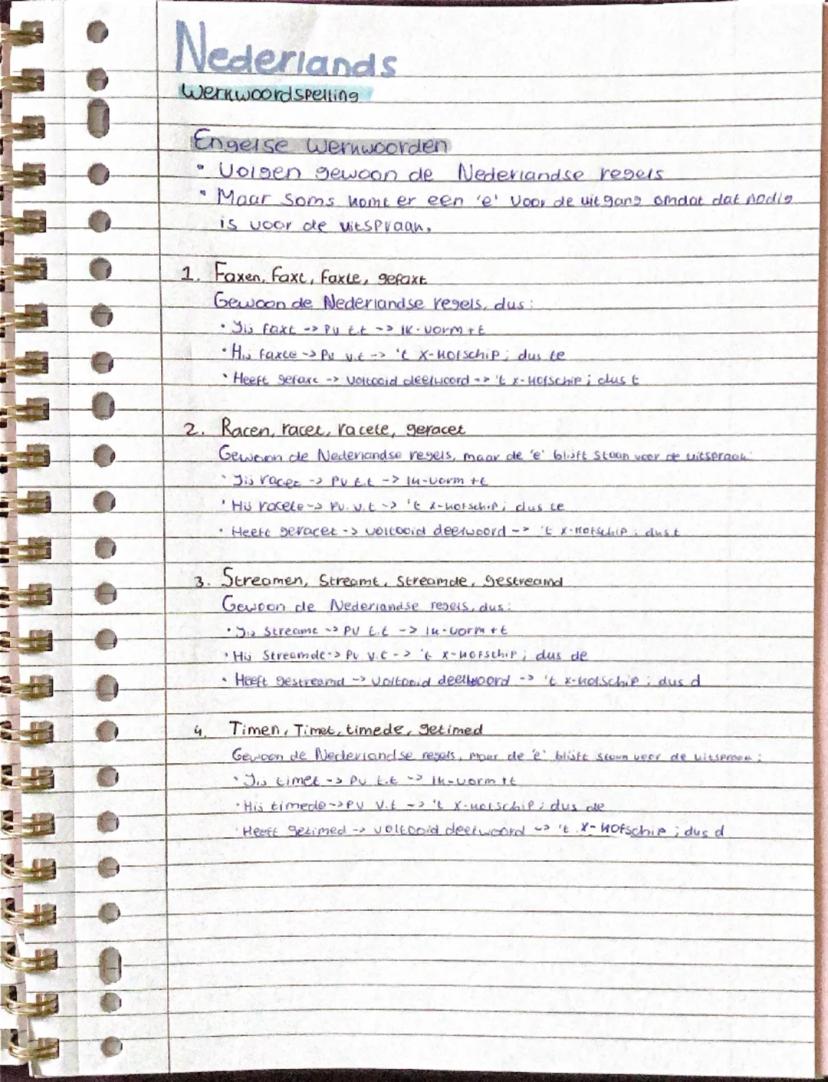 Nederlands
Werkwoordspelling
Engelse werkwoorden
• Volgen gewoon de Nederlandse regels
• Maar soms komt er een 'e' voor de uitgang omdat dat nodig
is voor de uitspraak.
1. Faxen, faxt, faxte, gefaxt
Gewoon de Nederlandse regels, dus:
• Jij faxt -> PV t.t -> ik-vorm + t
• Hij faxte -> PV v.t -> 't x-kofschip; dus te
• Heeft gefaxt -> voltooid deelwoord -> 't x-kofschip; dus t
2. Racen, racet, racete, geracet
Gewoon de Nederlandse regels, maar de 'e' blijft staan voor de uitspraak:
• Jij racet -> PV t.t -> ik-vorm + t
• Hij racete -> PV. v.t -> 't x-kofschip; dus te
• Heeft geracet -> voltooid deelwoord -> 't x-kofschip; dus t
3. Streamen, streamt, streamde, gestreamd
Gewoon de Nederlandse regels, dus:
• Jij streamt -> PV t.t -> ik-vorm + t
• Hij streamde -> PV v.t -> 't x-kofschip; dus de
• Heeft gestreamd -> voltooid deelwoord -> 't x-kofschip; dus d
4. Timen, Timet, timede, getimed
Gewoon de Nederlandse regels, maar de 'e' blijft staan voor de uitspraak;
• Jij timet -> PV t.t -> ik-vorm + t
• Hij timede -> PV v.t -> 't x-kofschip; dus de
• Heeft getimed -> voltooid deelwoord -> 't x-kofschip; dus d